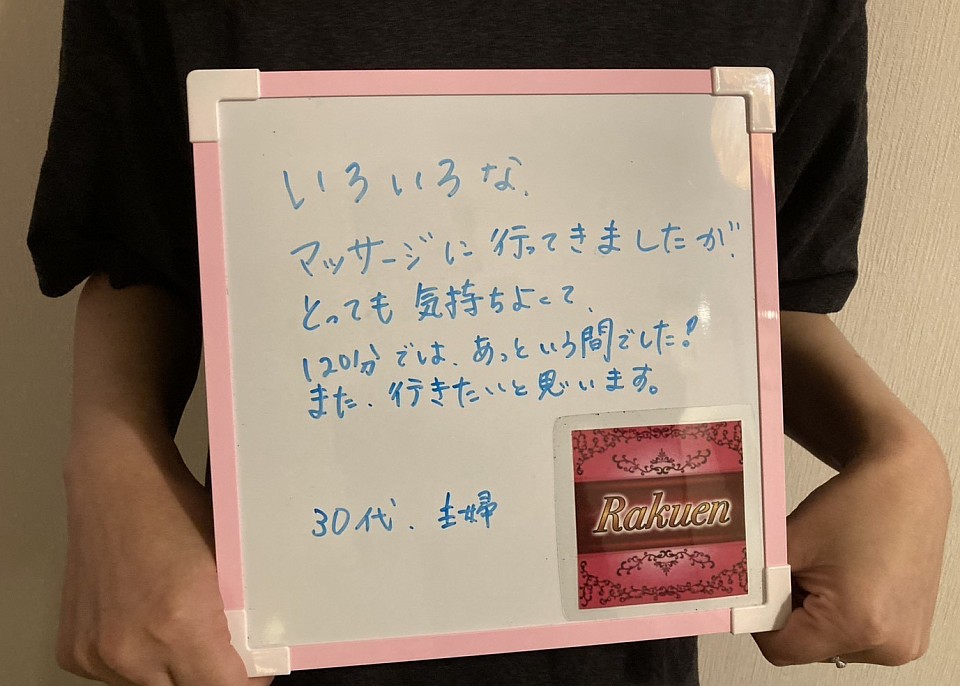 いろいろな、
マッサージに行ってきましたが、
とっても気持ちよくて、
120分では、あっという間でした!
また、行きたいと思います。
30代、主婦
Rakuen